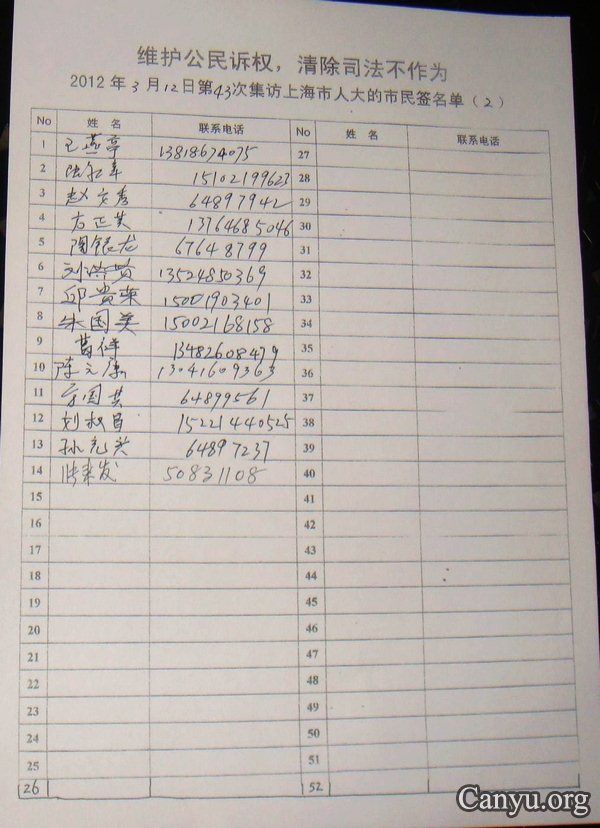 维护公民诉权，清除司法不作为
2012年3月12日第43次集访上海市人大的市民签名单（2）
No 姓 名 联系电话 No 姓 名 联系电话
1 王燕亭 13818674075 27
2 15102199623 28
3 赵文秀 64897942 29
4 方正英 13764685046 30
5 陶银龙 67648799 31
6 刘洪贵 13524850369 32
7 邱贵荣 15001903401 33
8 朱国英 15002168158 34
9 葛祥 13482608479 35
10 陈立康 13041609363 36
11 国英 64899561 37
12 刘权昌 15221440525 38
13 孙克英 64897237 39
14 张来发 50831108 40
15 41
16 42
17 43
18 44
19 45
20 46
21 47
22 48
23 49
24 50
25 51
26 52
Canyu.org